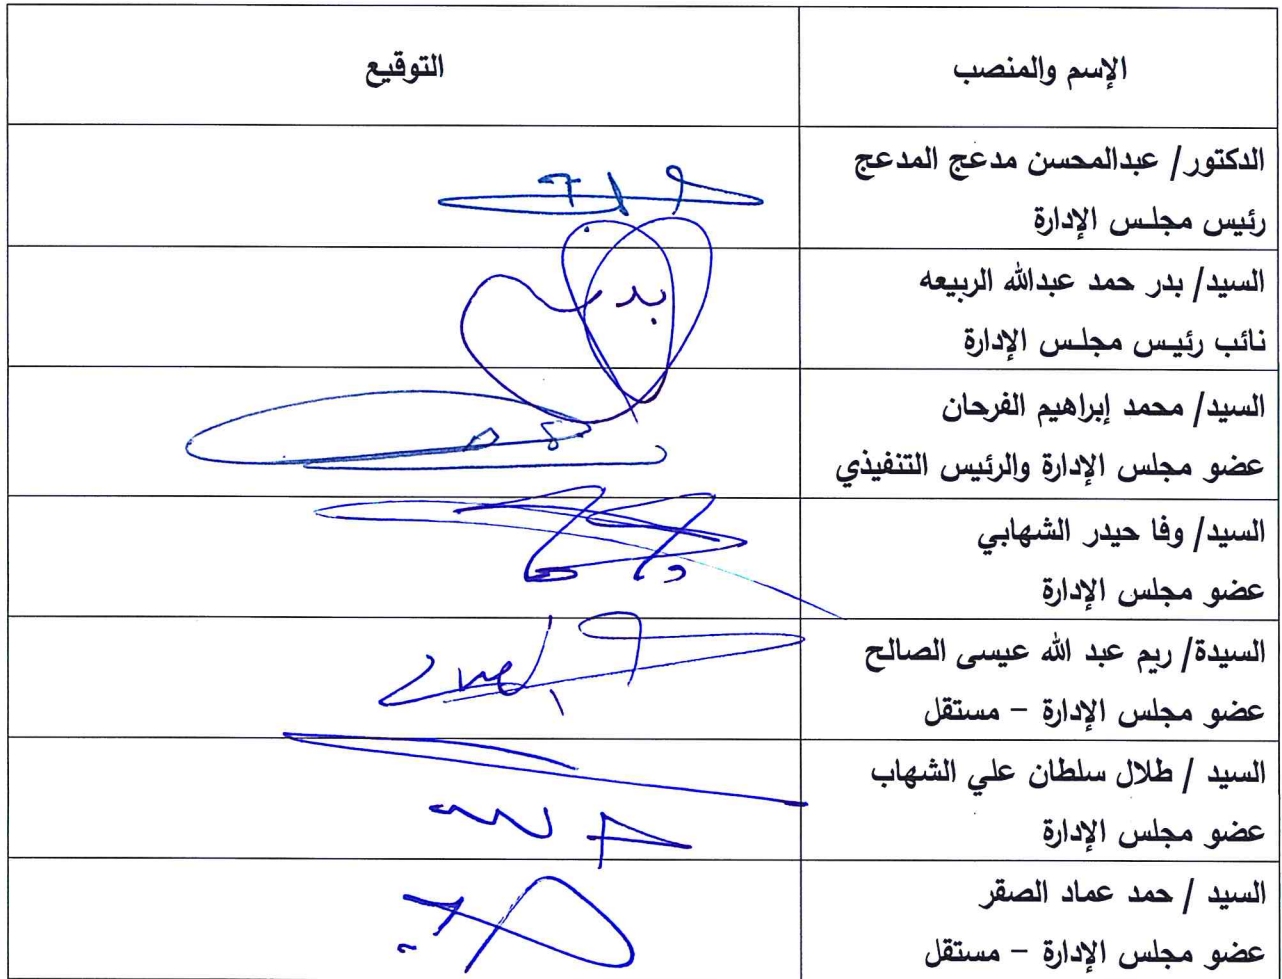 الإسم والمنصب
التوقيع
الدكتور/ عبدالمحسن مدعج المدعج
رئيس مجلس الإدارة
السيد/ بدر حمد عبدالله الربيعه
نائب رئيس مجلس الإدارة
بدر
السيد/ محمد إبراهيم الفرحان
عضو مجلس الإدارة والرئيس التنفيذي
السيد/ وفا حيدر الشهابي
عضو مجلس الإدارة
السيدة/ ريم عبد الله عيسى الصالح
عضو مجلس الإدارة – مستقل
السيد / طلال سلطان علي الشهاب
عضو مجلس الإدارة
السيد / حمد عماد الصقر
عضو مجلس الإدارة – مستقل